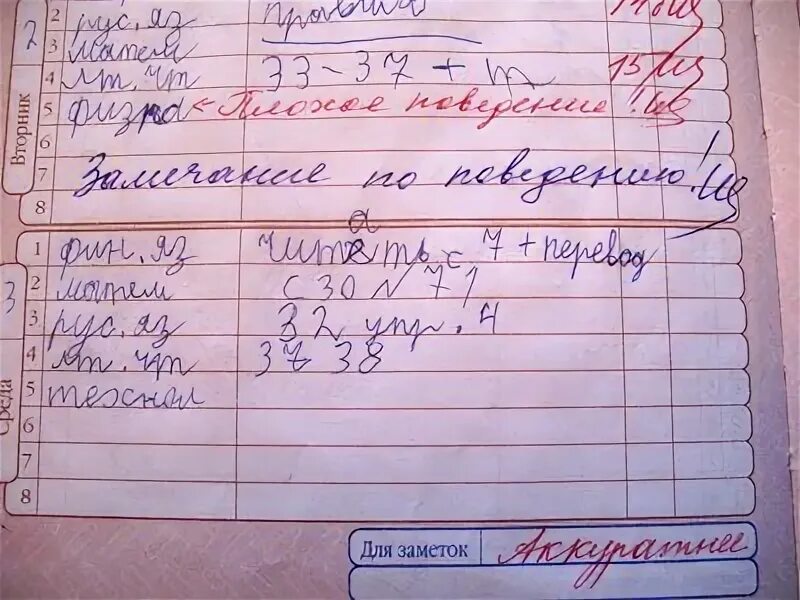 2 рус. яз правила
3 матем
4 лт. чт 33-37 + т 15
5 физ-ра < Плохое поведение!
6
7 Замечание по поведению!
8
Вторник
2
1 фин. яз читать с 7 + перевод
2 матем с 30 № 71
3 рус. яз 32 упр. 4
4 лт. чт 37 38
5 технол
6
7
8
Среда
3
Для заметок Аккуратнее